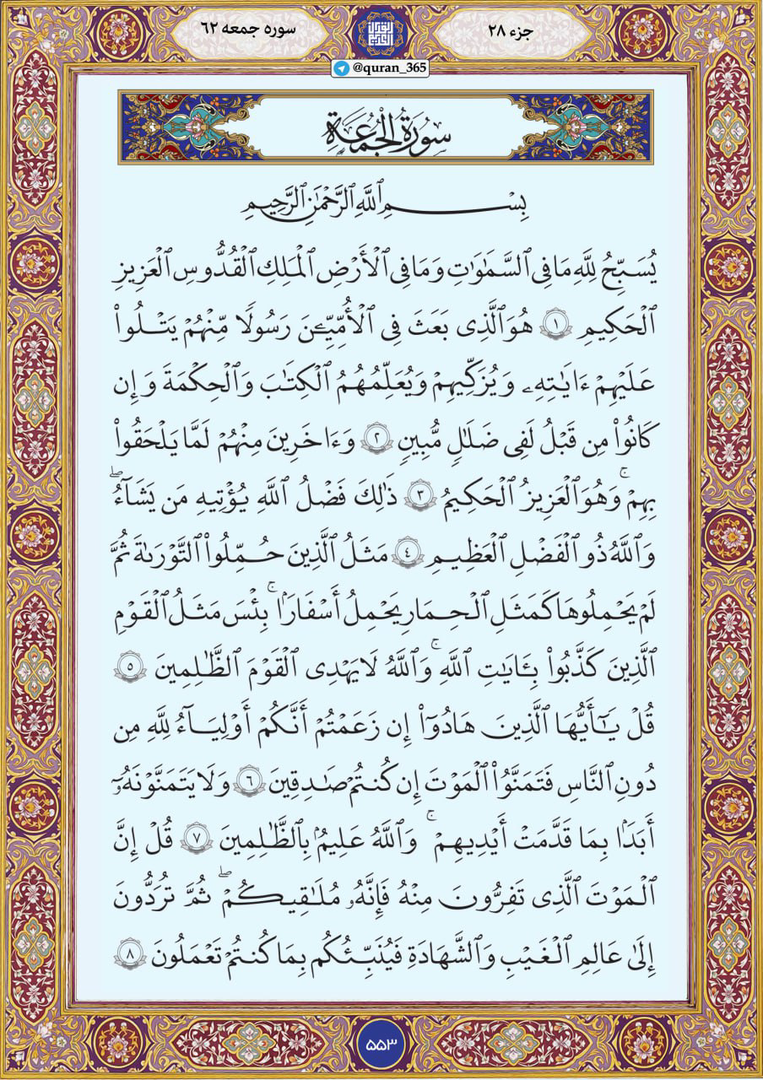 جزء ۲۸
سوره جمعه ۶۲
@quran_365
سُورَةُ الْجُمُعَةِ
بِسْمِ ٱللَّهِ ٱلرَّحْمَٰنِ ٱلرَّحِيمِ
يُسَبِّحُ لِلَّهِ مَا فِى ٱلسَّمَٰوَٰتِ وَمَا فِى ٱلْأَرْضِ ٱلْمَلِكِ ٱلْقُدُّوسِ ٱلْعَزِيزِ
ٱلْحَكِيمِ ١ هُوَ ٱلَّذِى بَعَثَ فِى ٱلْأُمِّيِّـۧنَ رَسُولًا مِّنْهُمْ يَتْلُوا۟
عَلَيْهِمْ ءَايَٰتِهِۦ وَيُزَكِّيهِمْ وَيُعَلِّمُهُمُ ٱلْكِتَٰبَ وَٱلْحِكْمَةَ وَإِن
كَانُوا۟ مِن قَبْلُ لَفِى ضَلَٰلٍ مُّبِينٍ ٢ وَءَاخَرِينَ مِنْهُمْ لَمَّا يَلْحَقُوا۟
بِهِمْ ۚ وَهُوَ ٱلْعَزِيزُ ٱلْحَكِيمُ ٣ ذَٰلِكَ فَضْلُ ٱللَّهِ يُؤْتِيهِ مَن يَشَآءُ ۖ
وَٱللَّهُ ذُو ٱلْفَضْلِ ٱلْعَظِيمِ ٤ مَثَلُ ٱلَّذِينَ حُمِّلُوا۟ ٱلتَّوْرَىٰةَ ثُمَّ
لَمْ يَحْمِلُوهَا كَمَثَلِ ٱلْحِمَارِ يَحْمِلُ أَسْفَارًۢا ۚ بِئْسَ مَثَلُ ٱلْقَوْمِ
ٱلَّذِينَ كَذَّبُوا۟ بِـَٔايَٰتِ ٱللَّهِ ۚ وَٱللَّهُ لَا يَهْدِى ٱلْقَوْمَ ٱلظَّٰلِمِينَ ٥
قُلْ يَٰٓأَيُّهَا ٱلَّذِينَ هَادُوٓا۟ إِن زَعَمْتُمْ أَنَّكُمْ أَوْلِيَآءُ لِلَّهِ مِن
دُونِ ٱلنَّاسِ فَتَمَنَّوُا۟ ٱلْمَوْتَ إِن كُنتُمْ صَٰدِقِينَ ٦ وَلَا يَتَمَنَّوْنَهُۥٓ
أَبَدًۢا بِمَا قَدَّمَتْ أَيْدِيهِمْ ۚ وَٱللَّهُ عَلِيمٌۢ بِٱلظَّٰلِمِينَ ٧ قُلْ إِنَّ
ٱلْمَوْتَ ٱلَّذِى تَفِرُّونَ مِنْهُ فَإِنَّهُۥ مُلَٰقِيكُمْ ۖ ثُمَّ تُرَدُّونَ
إِلَىٰ عَٰلِمِ ٱلْغَيْبِ وَٱلشَّهَٰدَةِ فَيُنَبِّئُكُم بِمَا كُنتُمْ تَعْمَلُونَ ٨
۵۵۳